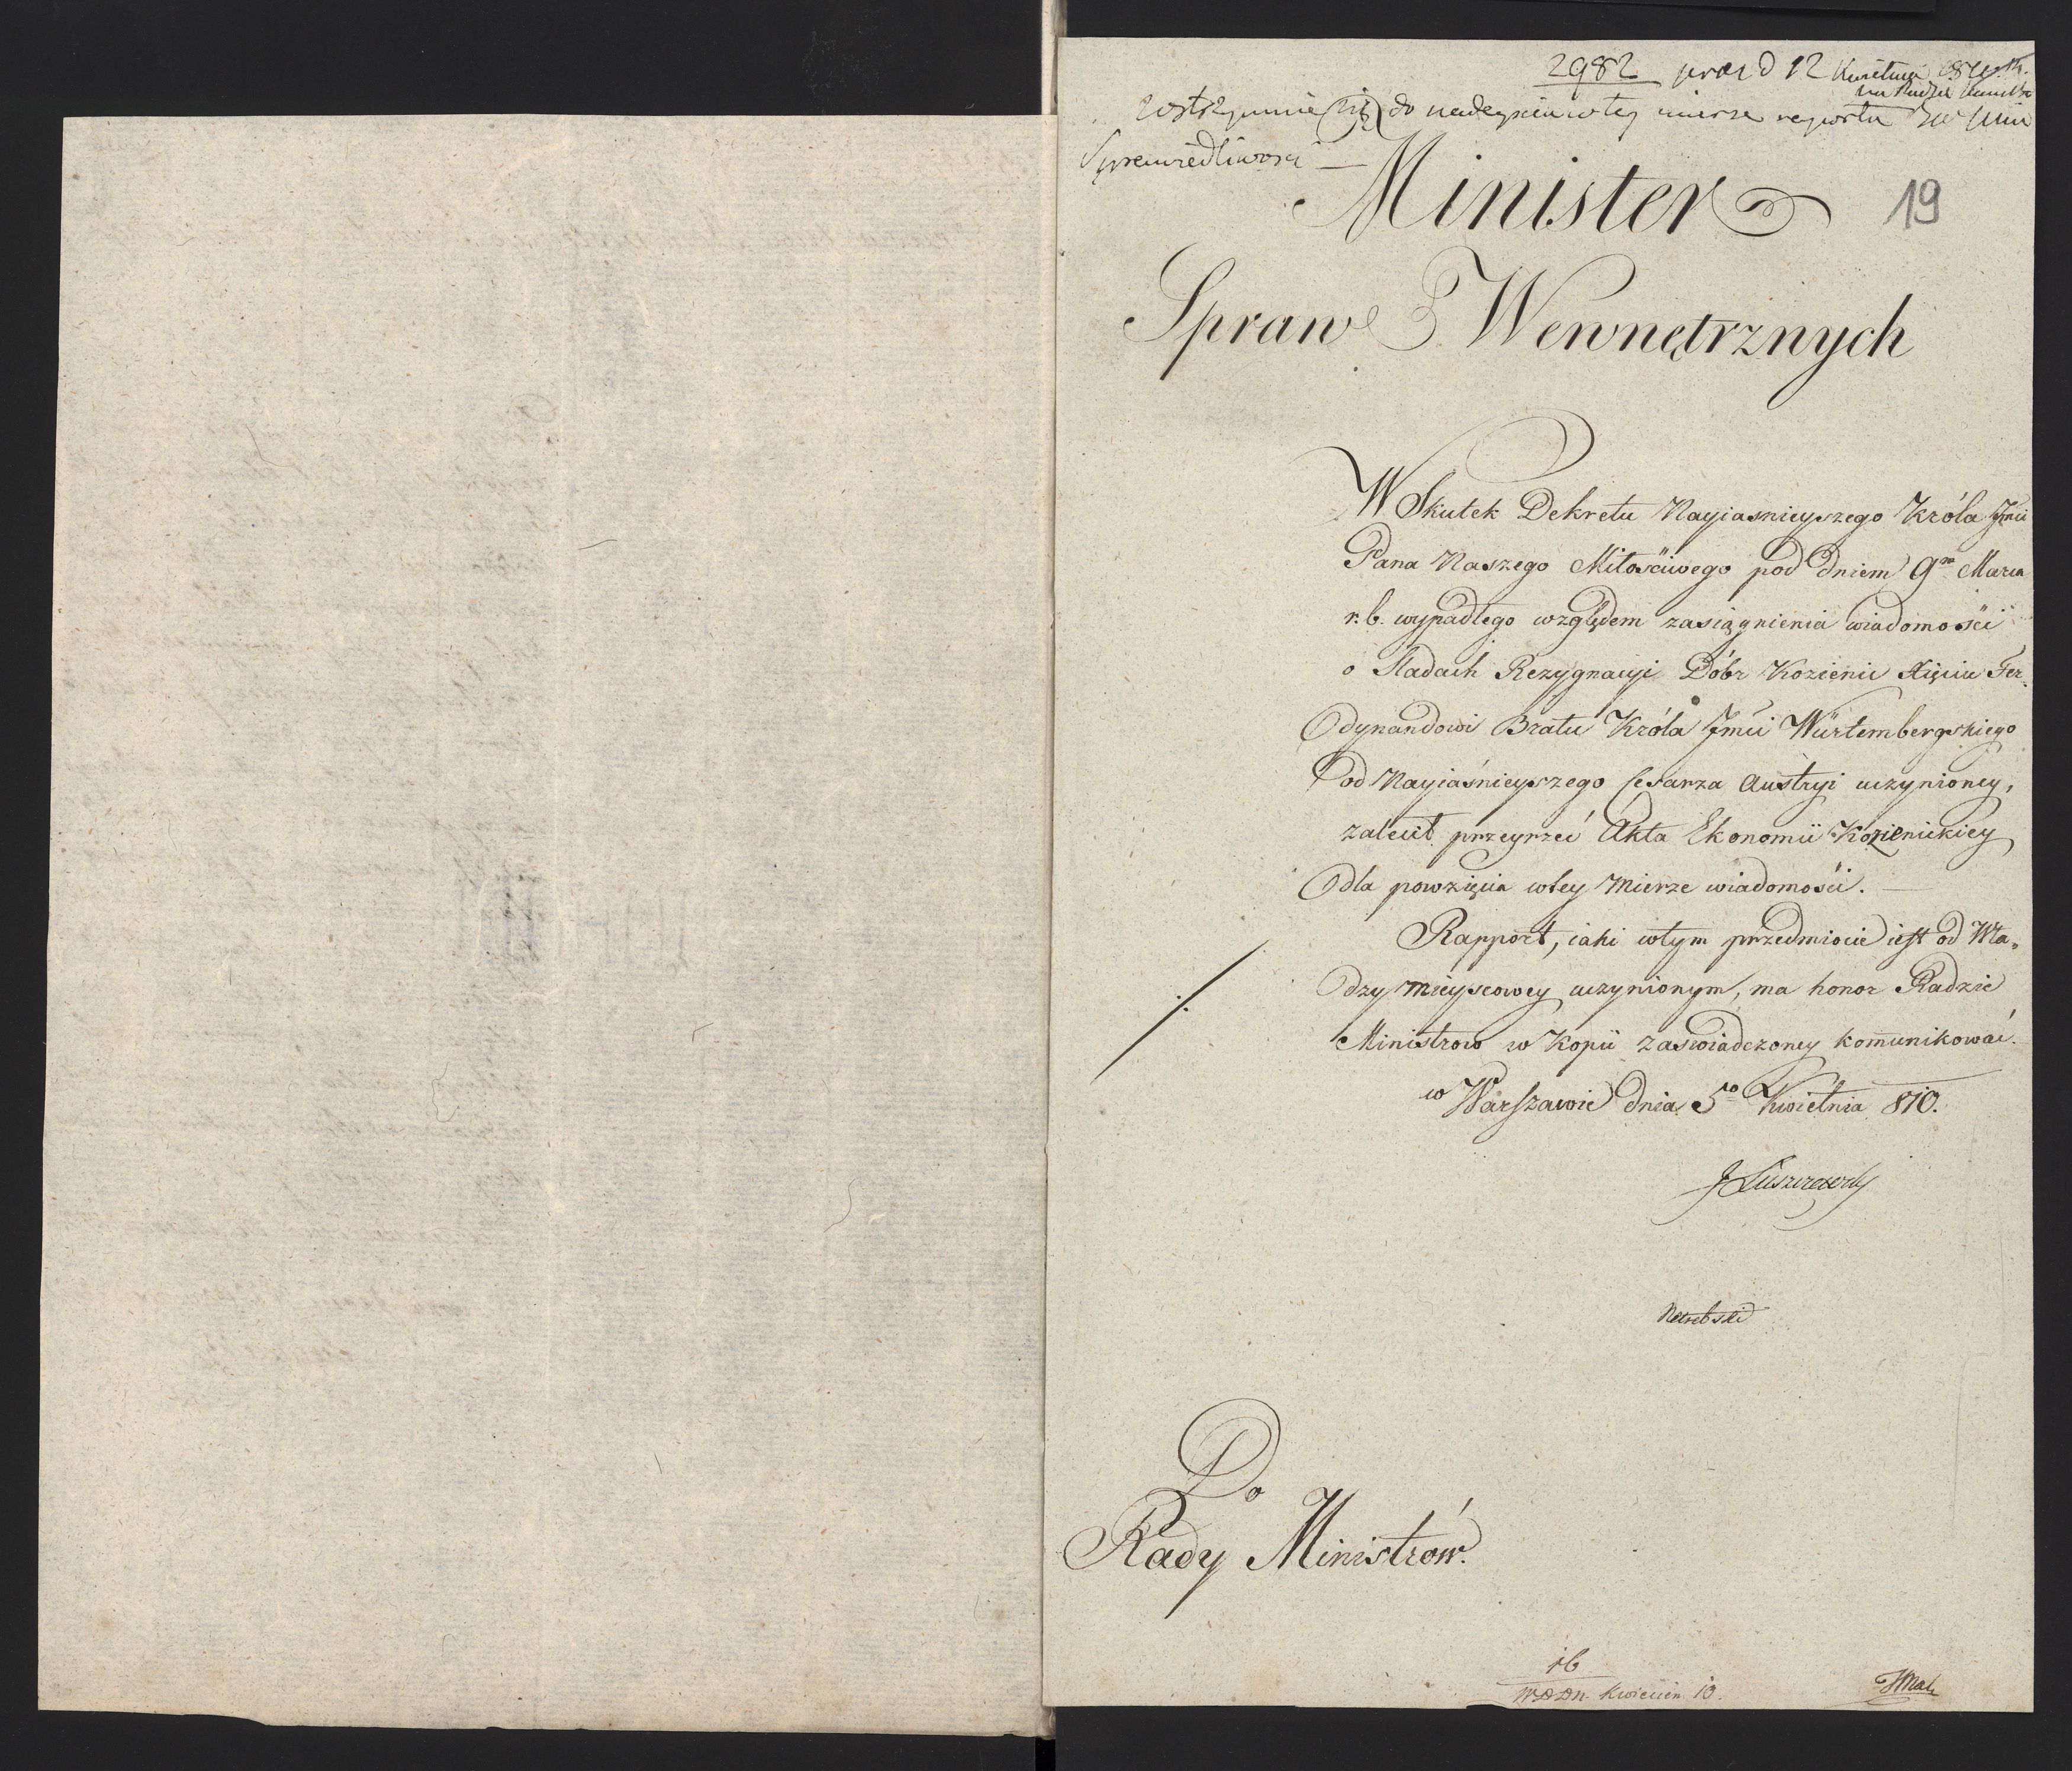 2982 praes d 12 Kwietnia 1810
wstrzymuie się do nadeyscia wtey mierze raportu
Sprawiedliwosci —
Minister
19
Spraw Wewnętrznych
W Skutek Dekretu Nayiasnieyszego Króla Jmci
Pana Naszego Miłościwego pod dniem 9m Marca
r: b. wypadłego względem zasiągnienia wiadomości
o śladach Rezygnacyi Dóbr Kozienic Xięciu Fer-
dynandowi Bratu Króla Jmci Würtembergskiego
od Nayiaśnieyszego Cesarza Austryi uczynioney,
zalecił przeyrzeć Akta Ekonomii Kozienickiey
dla powzięcia wtey Mierze wiadomości. —
Rapport, iaki wtym przedmiocie iest od Wła-
dzy mieyscowey uczynionym, ma honor Radzie
Ministrow w Kopii zaswiadczoney komunikować.
w Warszawie dnia 5go Kwietnia 810.
J Łuszczewski
Do
Rady Ministrów.
16
Kwiecień 10.